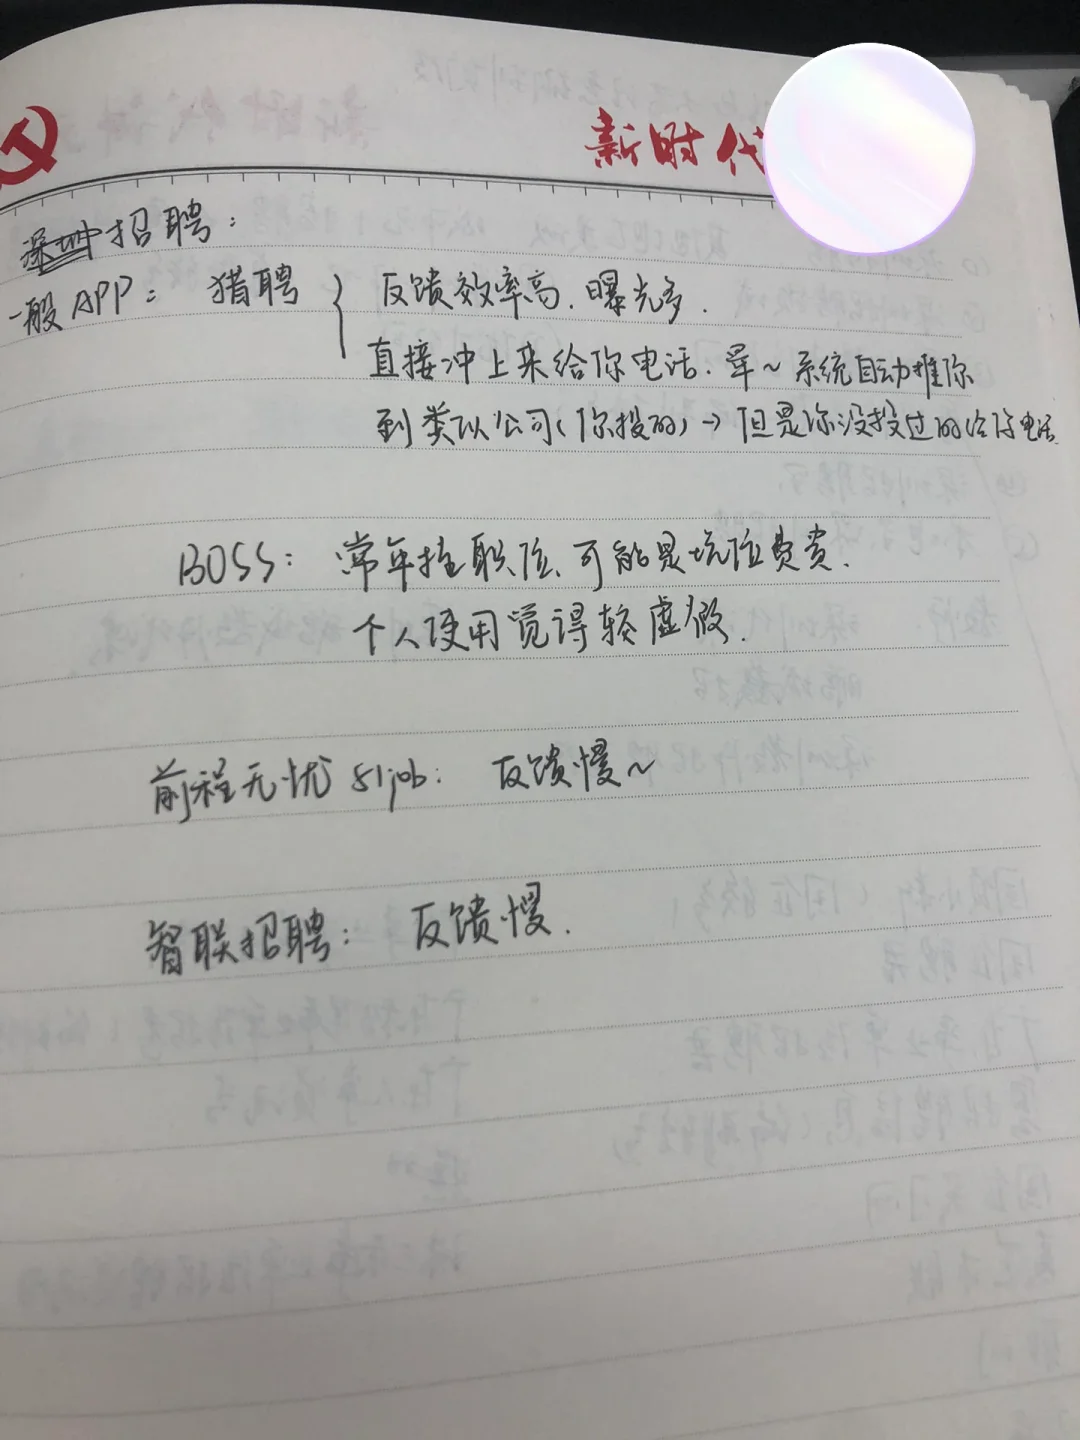 新时代
深圳招聘:
一般APP: 猎聘 { 反馈效率高.曝光多.
直接冲上来给你电话.晕~系统自动推你
到类似公司(你投的)→但是你没投过的给你电话
BOSS: 常年挂职位、可能是坑位费贵.
个人使用觉得较虚假.
前程无忧 51job: 反馈慢~
智联招聘: 反馈慢.